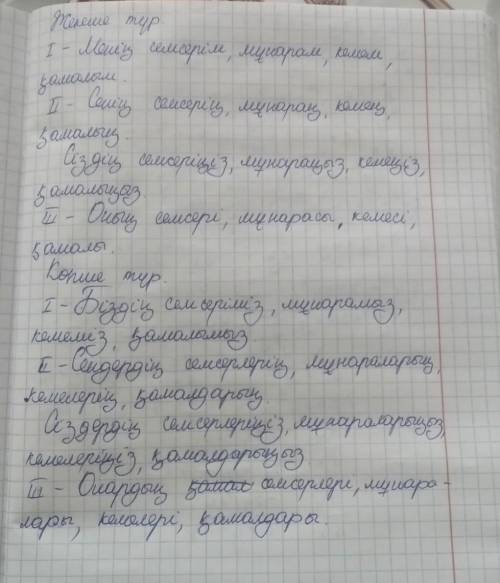 Жекеше түр
I - Менің семсерім, мұнарам, кемем,
қамалым.
II - Сенің семсерің, мұнараң, кемең,
қамалың.
Сіздің семсеріңіз, мұнараңыз, кемеңіз,
қамалыңыз.
III - Оның семсері, мұнарасы, кемесі,
қамалы.
Көпше түр.
I - Біздің семсеріміз, мұнарамыз,
кемеміз, қамалымыз.
II - Сендердің семсерлерің, мұнараларың,
кемелерің, қамалдарың.
Сіздердің семсерлеріңіз, мұнараларыңыз,
кемелеріңіз, қамалдарыңыз
III - Олардың қамал семсерлері, мұнара-
лары, кемелері, қамалдары.